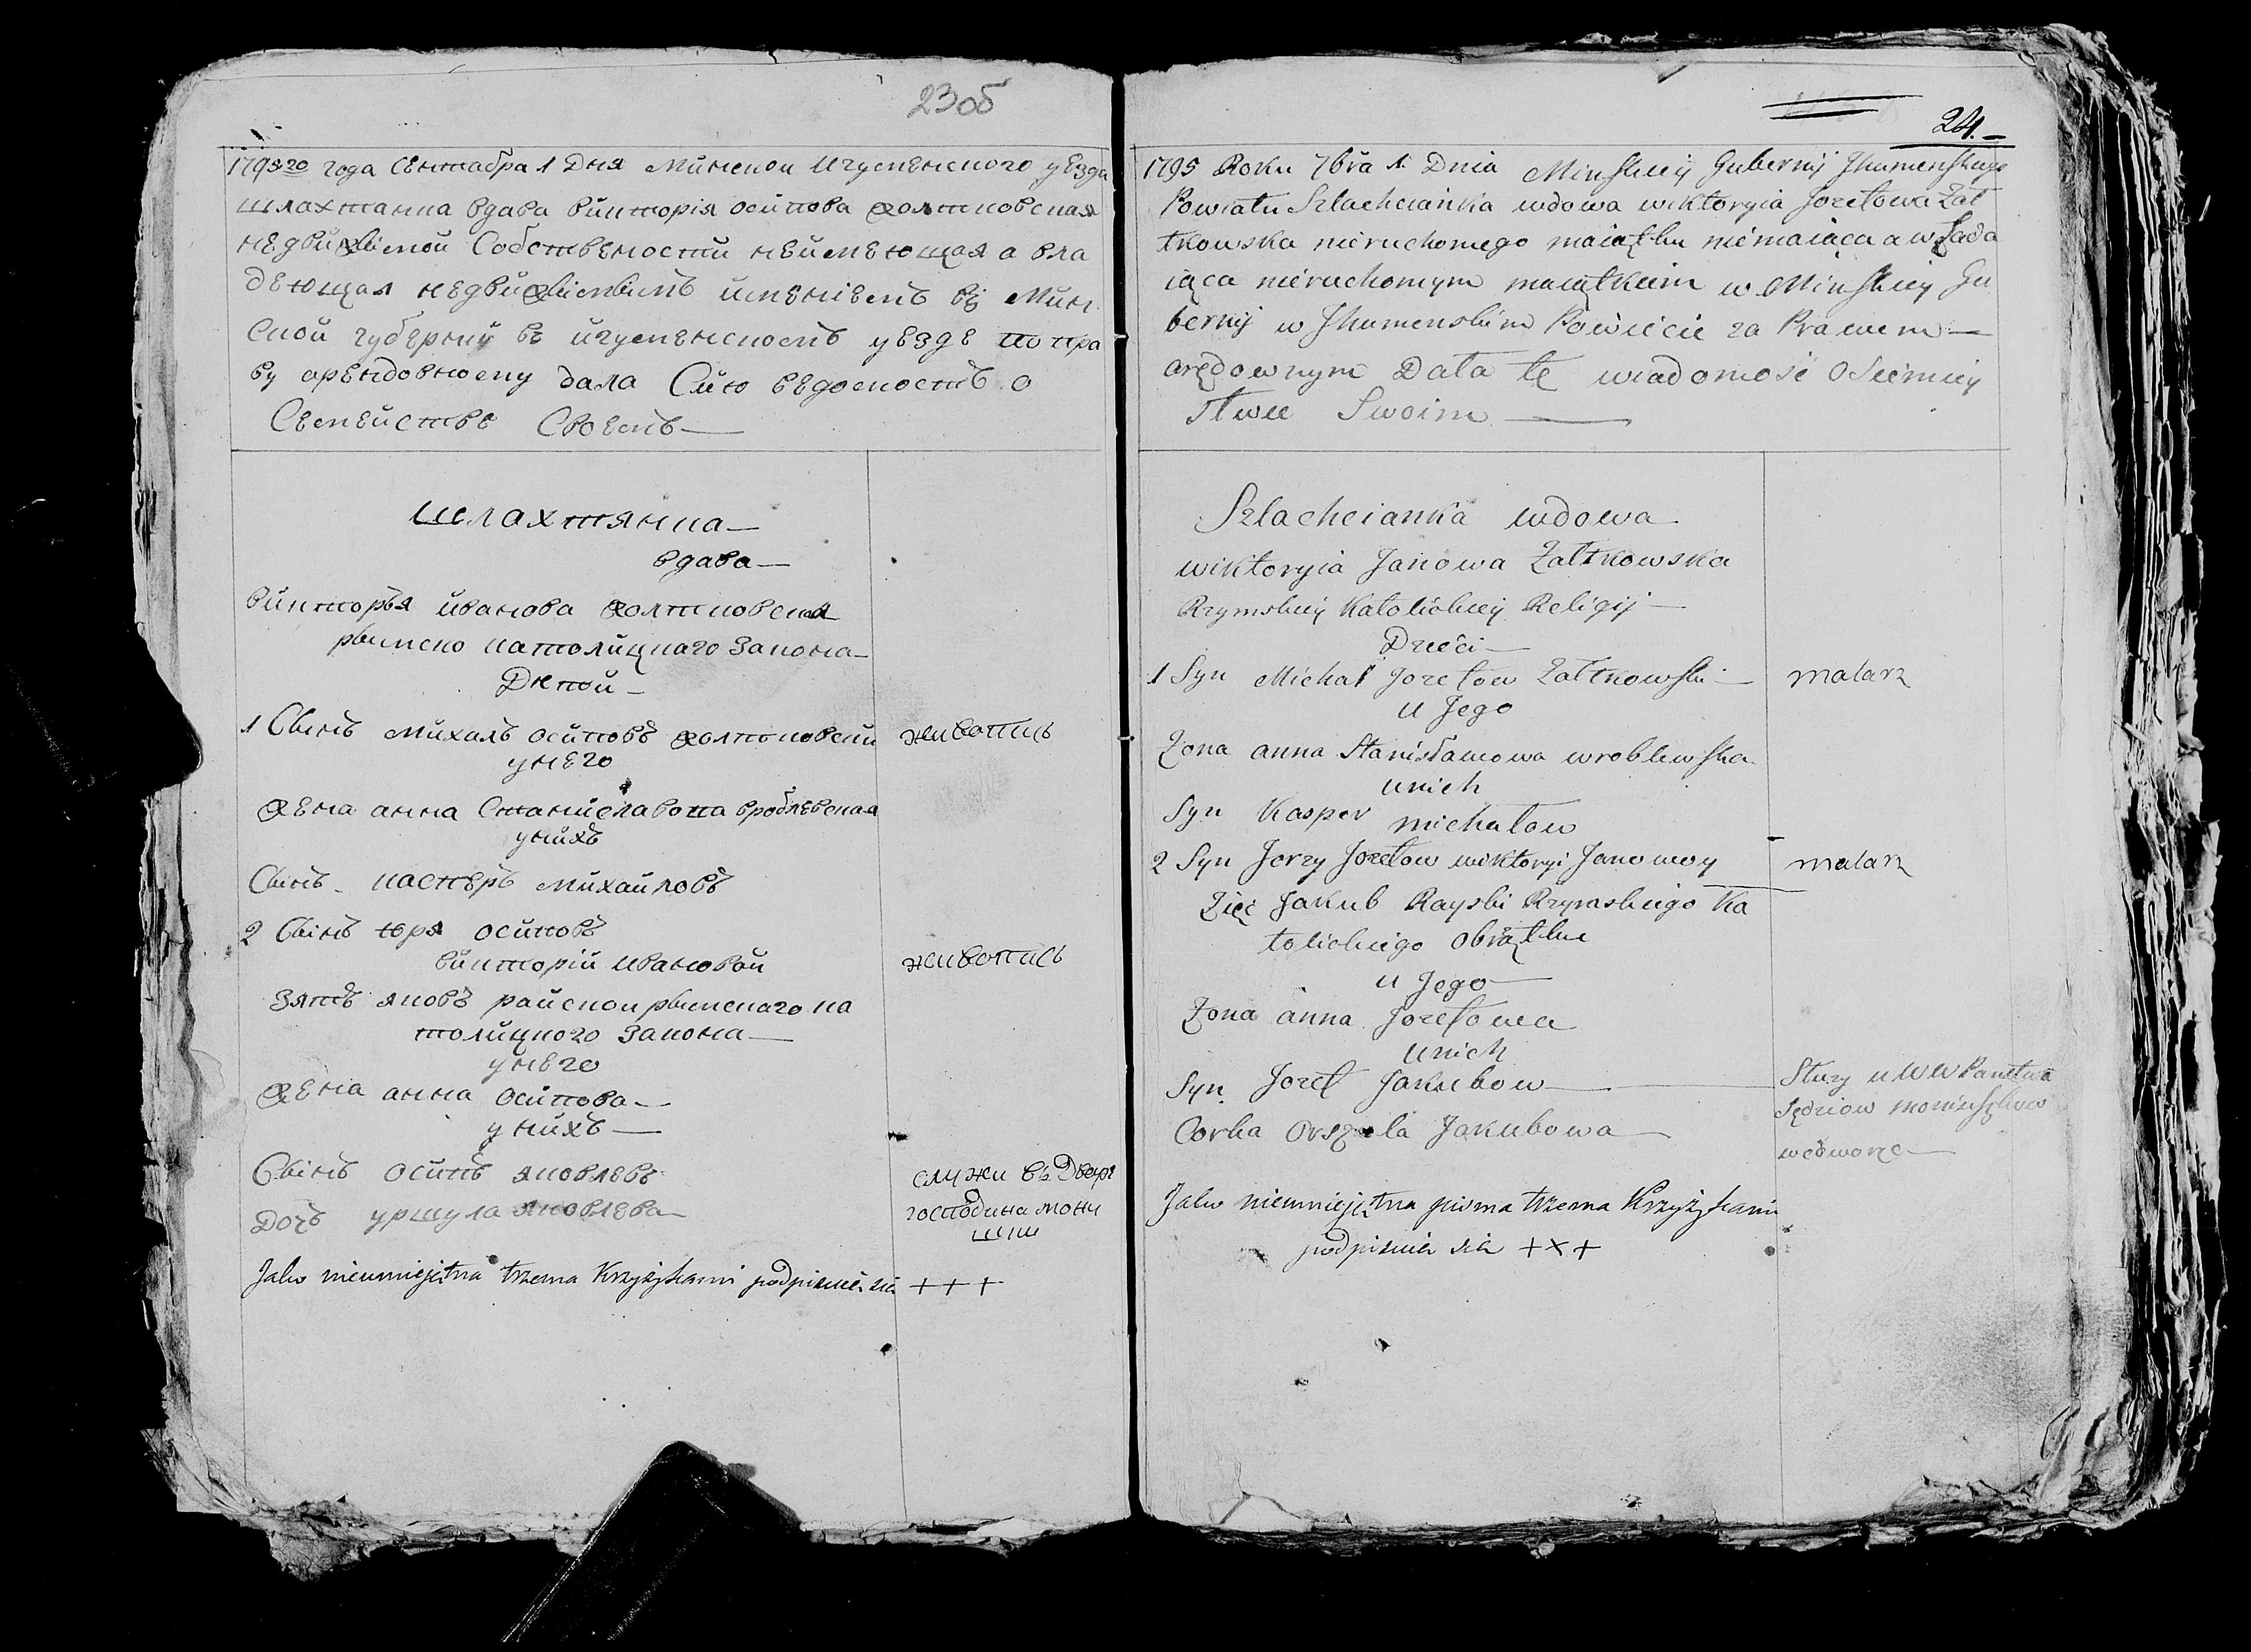 23об
1795го года Сентабра 1 Дня Минской Игуменского уезда
шлахтанка вдава викторія осипова жолтковская
недвижимой Собственности неймеющая а вла
деющая недвижимымъ именіемъ въ Мин
ской губерній въ игуменскомъ уезде по пра
ву арендовному дала Сию ведомость о
Семействе Своемъ
шлахтянка
вдава
викторья иванова жолтковская
рымско католицкаго закона
1 Сынъ михалъ осиповъ жолтковский живопись
у него
жена анна Станиславова вроблевская
у нихъ
Сынъ касперъ михайловъ
2 Сынъ юря осиповъ
викторій ивановой живопись
Зять яковъ райской рымскаго ка
толицкого закона
у него
жена анна осипова
у нихъ
Сынъ осипъ яковлевъ служи въ Дворе
Дочъ уршула яковлева господина мони
шки
Jako nieumiejętna trzema Krzyżykami podpisuie sie +++
24.
1795 Roku 7bra 1 Dnia Minskiey Gubernij Jhumenskiego
Powiatu Szlachcianka wdowa wiktoryia Jozefowa Zał
tkowska nieruchomego maiątku niemaiąca a włada
iąca nieruchomym maiątkiem w Minskiey Gu
bernij w Jhumenskim Powiecie za Prawem
arędownym Data tę wiadomość o Siemiey
stwie Swoim
Szlachcianka wdowa
wiktoryia Janowa Załtkowska
Rzymskiey Katolickiey Religij
Dzieci
1 Syn Michał Jozefow Załtkowski malarz
u Jego
Zona anna Stanisławowa wroblewska
unich
Syn Kasper michałow
2 Syn Jerzy Jozefow wiktoryi Janowoy malarz
Zięć Jakub Rayski Rzymskiego Ka
tolickiego obrątku
u Jego
Zona anna Jozefowa
unich
Syn Jozef Jakubow Służy u WW Panstwa
Corka Orszula Jakubowa Sędziow moniuszkow
we dworze
Jako nieumiejętna pisma trzema Krzyżykami
podpisuie sie +×+